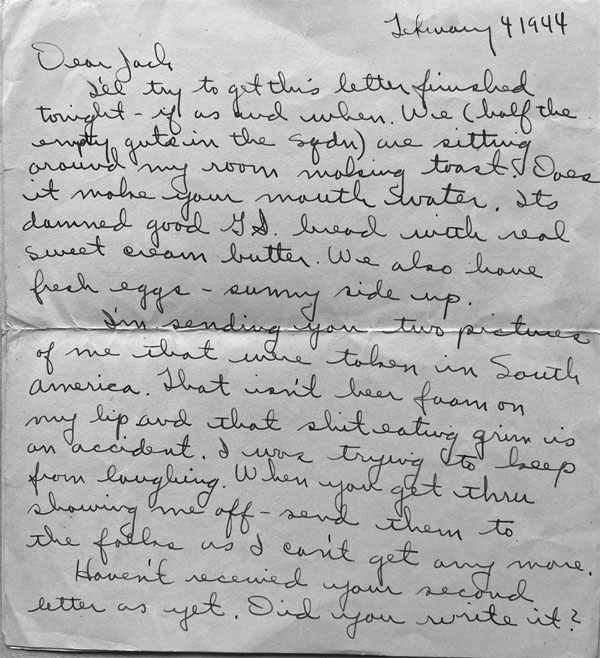 February 4 1944
Dear Jack
I'll try to get this letter finished
tonight - if as and when. We (half the
empty guts in the sqdn) are sitting
around my room making toast! Does
it make your mouth water. Its
damned good G.I. bread with real
sweet cream butter. We also have
fresh eggs - sunny side up.
I'm sending you two pictures
of me that were taken in South
America. That isn't beer foam on
my lip and that shit eating grin is
an accident. I was trying to keep
from laughing. When you get thru
showing me off - send them to
the folks as I can't get any more.
Haven't received your second
letter as yet. Did you write it?